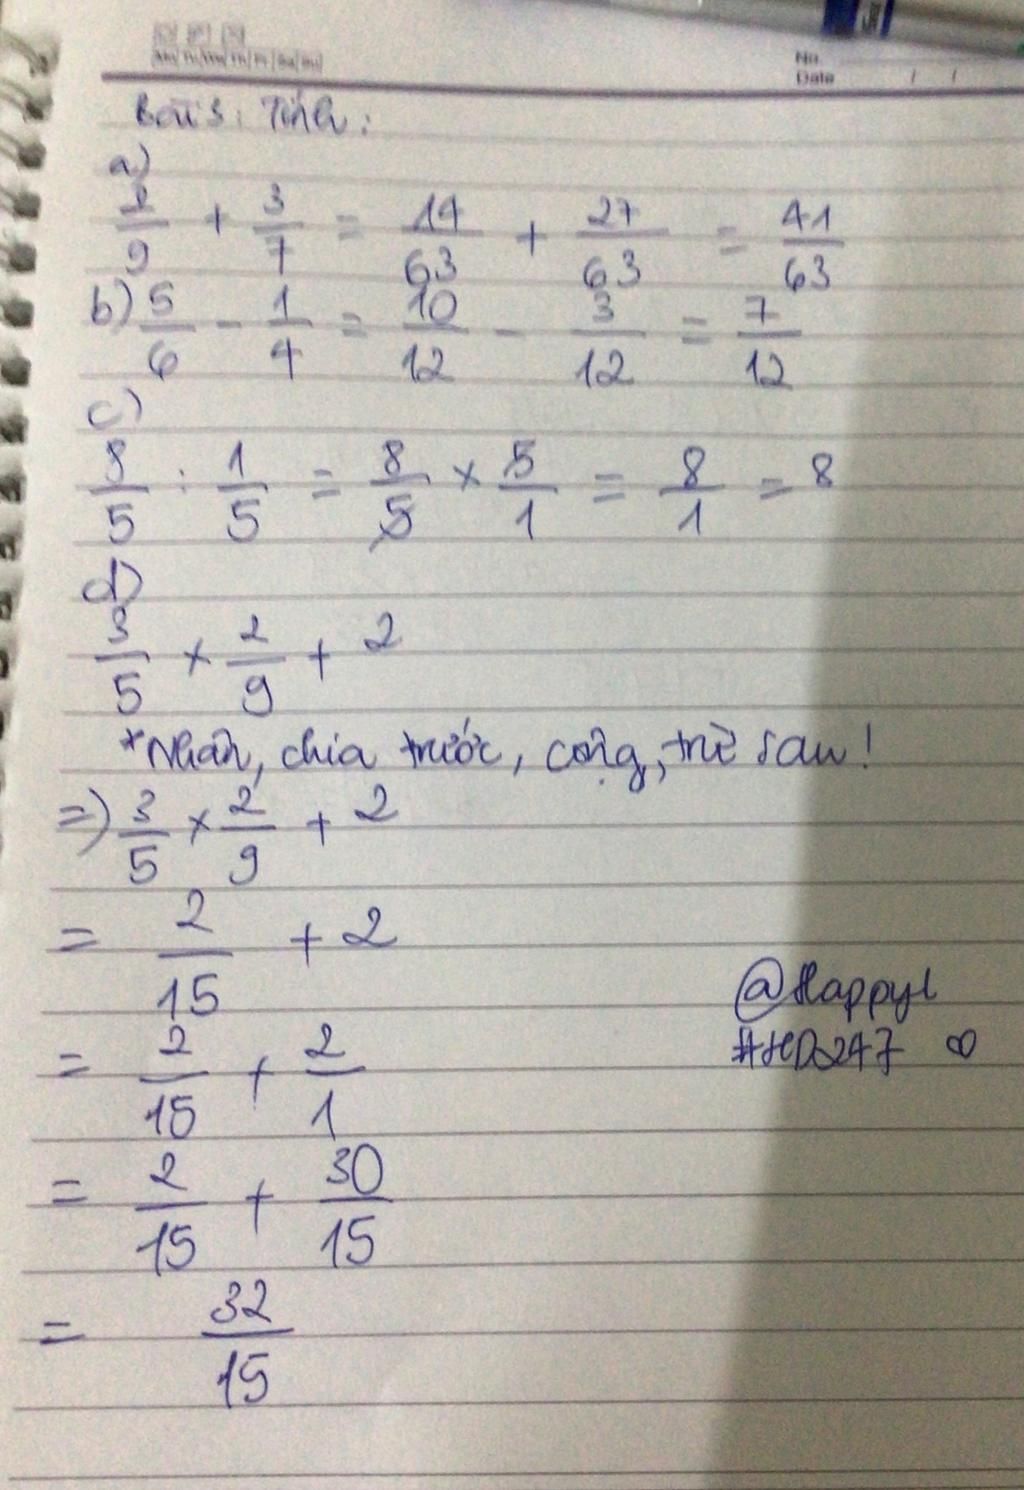 Mo Tu We Th Fr Sa Su
No.
Date / /
Bài 3: Tính:
a)
2/9 + 3/7 = 14/63 + 27/63 = 41/63
b) 5/6 - 1/4 = 10/12 - 3/12 = 7/12
c)
8/5 : 1/5 = 8/5 × 5/1 = 8/1 = 8
d)
3/5 × 2/9 + 2
*Nhân, chia trước, cộng, trừ sau!
=) 3/5 × 2/9 + 2
= 2/15 + 2
@Happyl
= 2/15 + 2/1
= 2/15 + 30/15
= 32/15